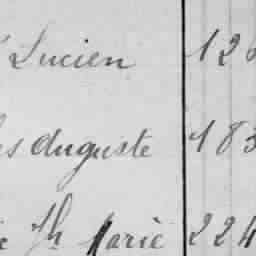 Lucien 12
Auguste 183
Th Marie 224